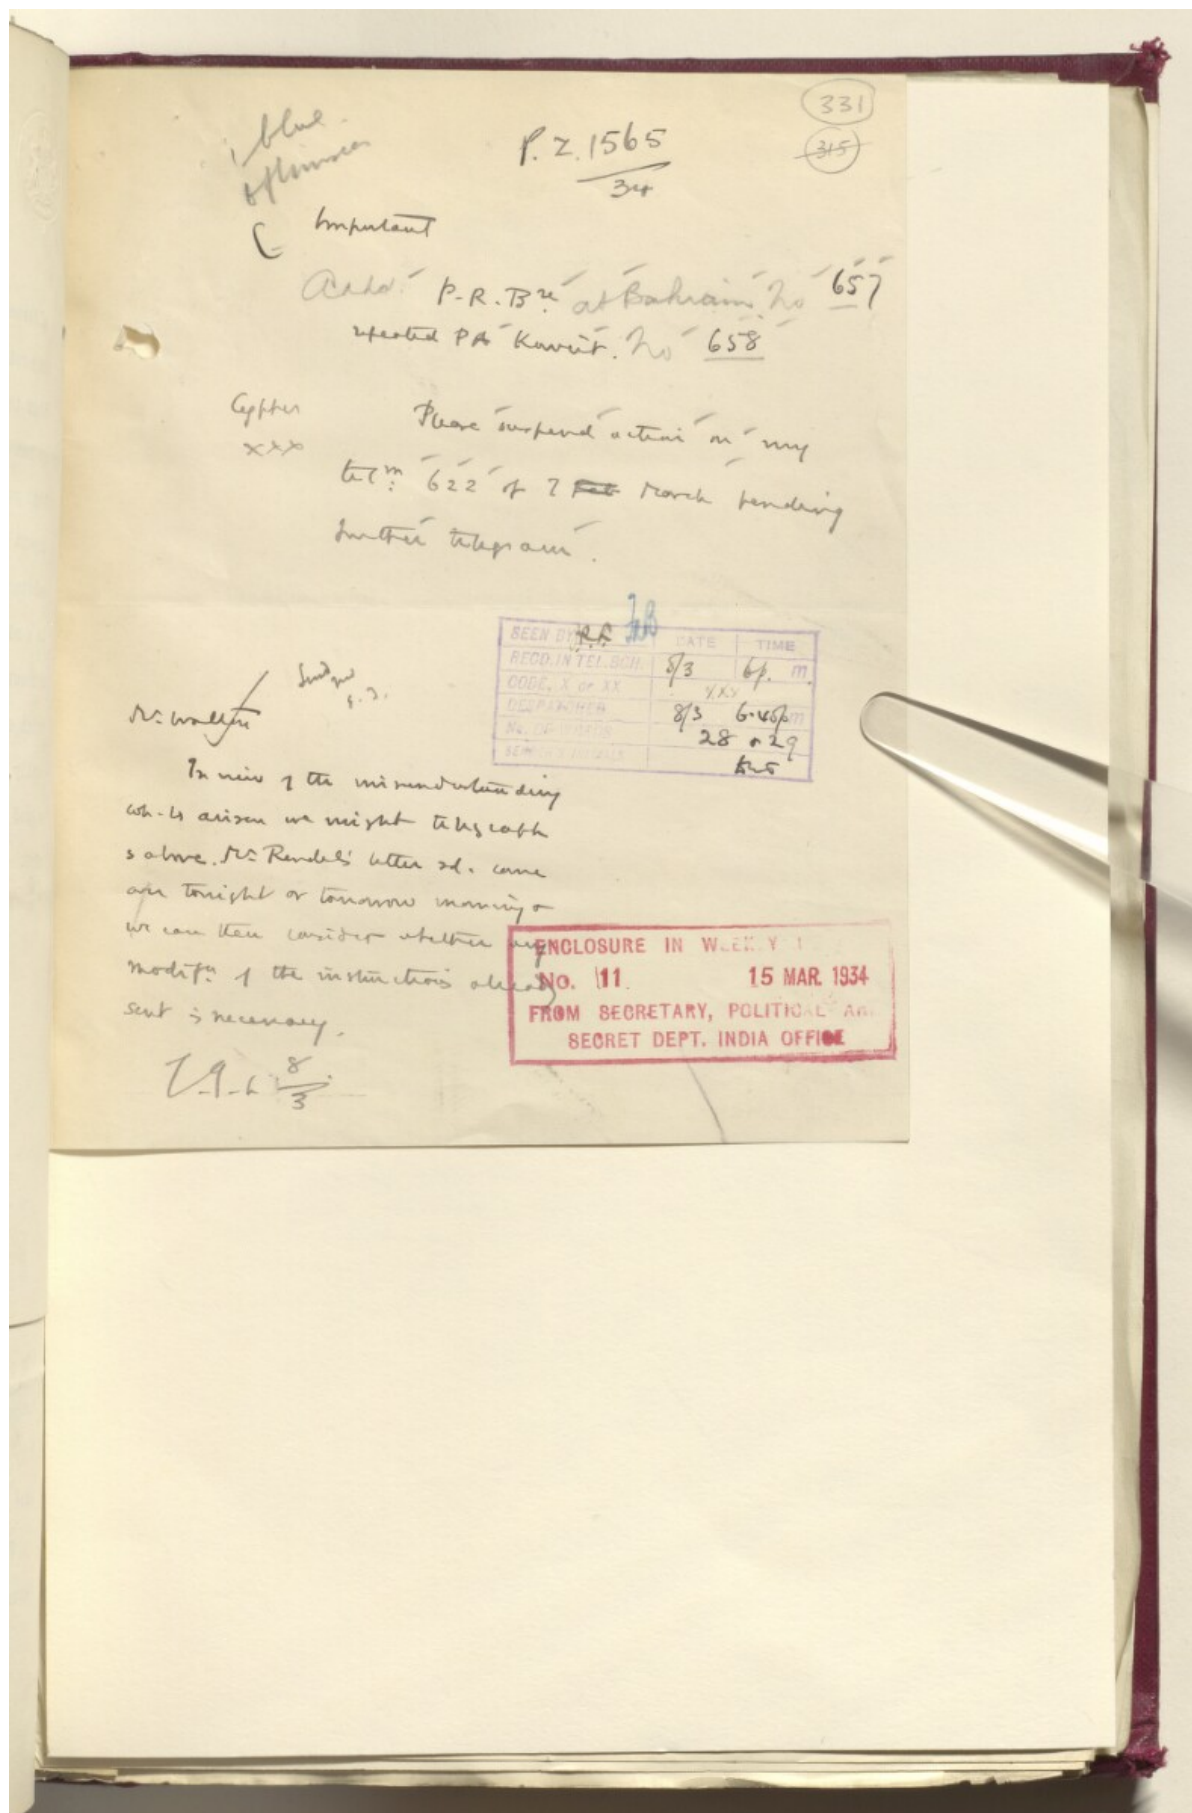 331
315
blue
P.Z. 1565
34
Important
Addd. P.R. Bre. at Bahrain No 657
repeated PA Kuwait. No 658
Cypher
XXX
Please suspend action on my
telm. 622 of 7 Feb March pending
further telegram.
SEEN BY DATE TIME
RECD. IN TEL. BCH. 8/3 6 p. m.
CODE, X or XX XXX
DESPATCHED 8/3 6.45 pm
No. OF WORDS 28 29
SENDER'S INITIALS
8.3.
Mr. Walton
In view of the misunderstanding
wh. is arisen we might telegraph
as above. Mr Rendel's letter sd. come
over tonight or tomorrow morning &
we can then consider whether any
modifn. of the instructions already
sent is necessary.
8/3
ENCLOSURE IN WEEKLY
No. 11 15 MAR. 1934
FROM SECRETARY, POLITICAL AN
SECRET DEPT. INDIA OFFICE